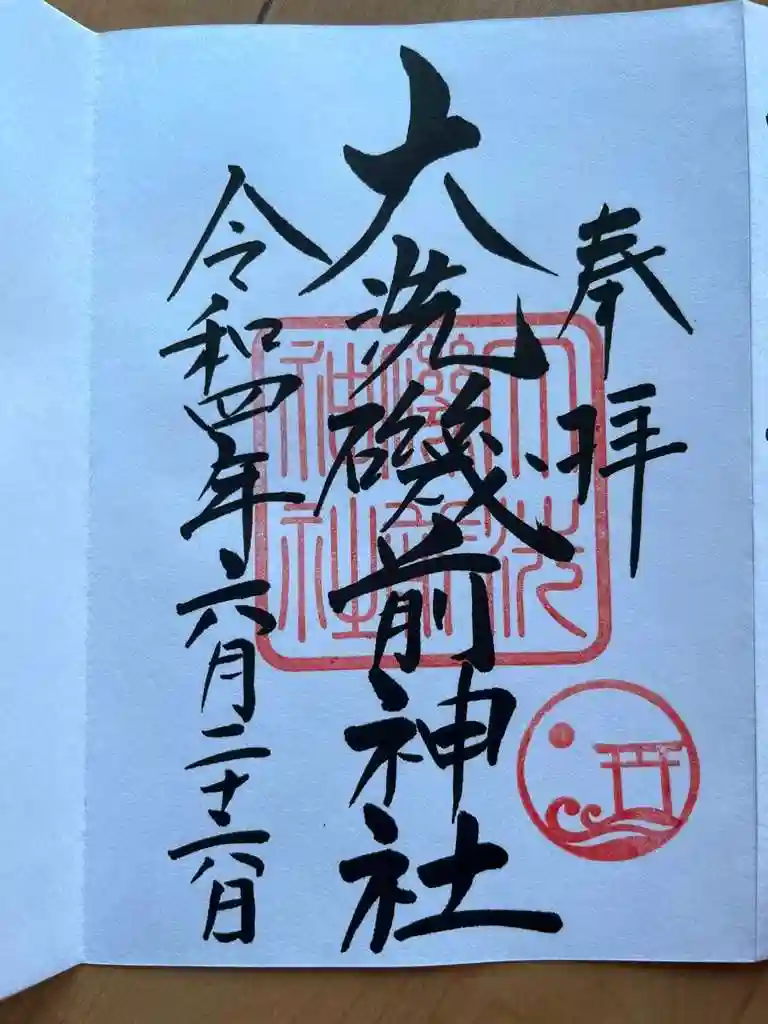 奉拝
大洗磯前神社
大洗
磯前
神社
令和四年六月二十六日